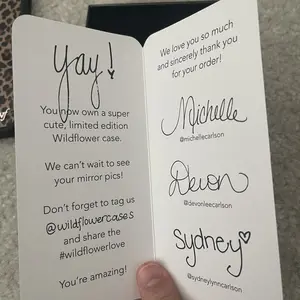 yay!
You now own a super
cute, limited edition
Wildflower case.
We can't wait to see
your mirror pics!
Don't forget to tag us
@wildflowercases
and share the
#wildflowerlove
You're amazing!
We love you so much
and sincerely thank you
for your order!
Michelle
@michellecarlson
Devon
@devonleecarlson
Sydney
@sydneylynncarlson